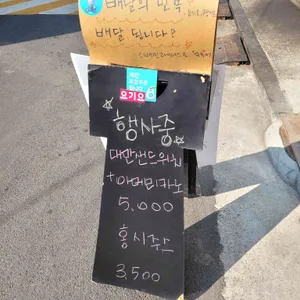 배달의 민족
배달 됩니다?
요기요
행사중
대만샌드위치
+아메리카노
5,000
홍시주스
3,500